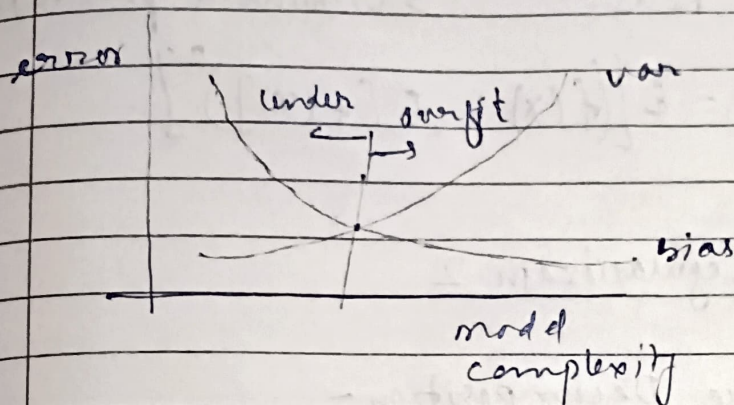 error
var
under
overfit
bias
model
complexity